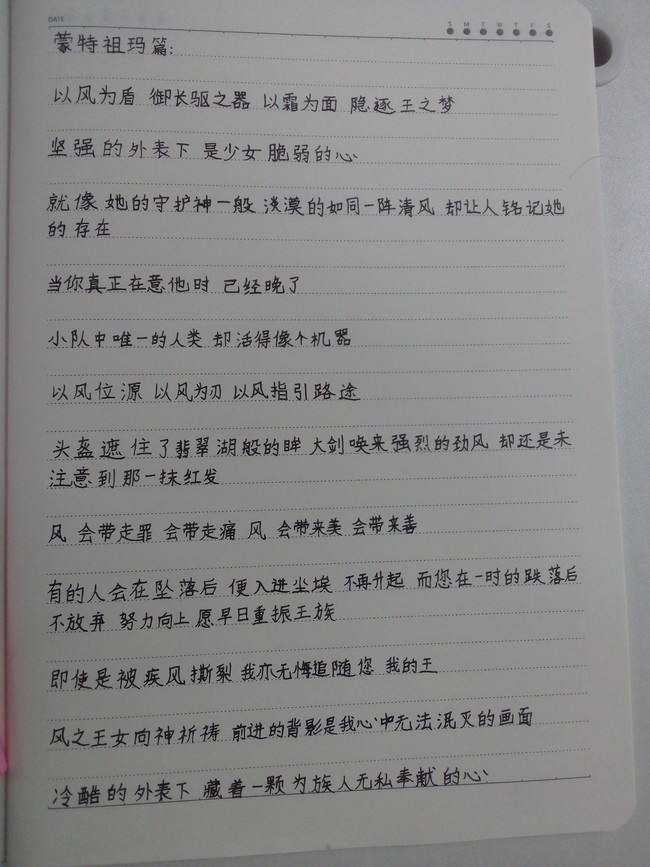 DATE
S M T W T F S
蒙特祖玛篇:
以风为盾 御长驱之器 以霜为面 隐逐王之梦
坚强的外表下 是少女脆弱的心
就像她的守护神一般 淡漠的如同一阵清风 却让人铭记她
的存在
当你真正在意他时 已经晚了
小队中唯一的人类 却活得像个机器
以风位源 以风为刃 以风指引路途
头盔遮住了翡翠湖般的眸 大剑唤来强烈的劲风 却还是未
注意到那一抹红发
风 会带走罪 会带走痛 风 会带来美 会带来善
有的人会在坠落后 便入进尘埃 不再升起 而您在一时的跌落后
不放弃 努力向上 愿早日重振王族
即使是被疾风撕裂 我亦无悔追随您 我的王
风之王女向神祈祷 前进的背影是我心中无法泯灭的画面
冷酷的外表下 藏着一颗为族人无私奉献的心